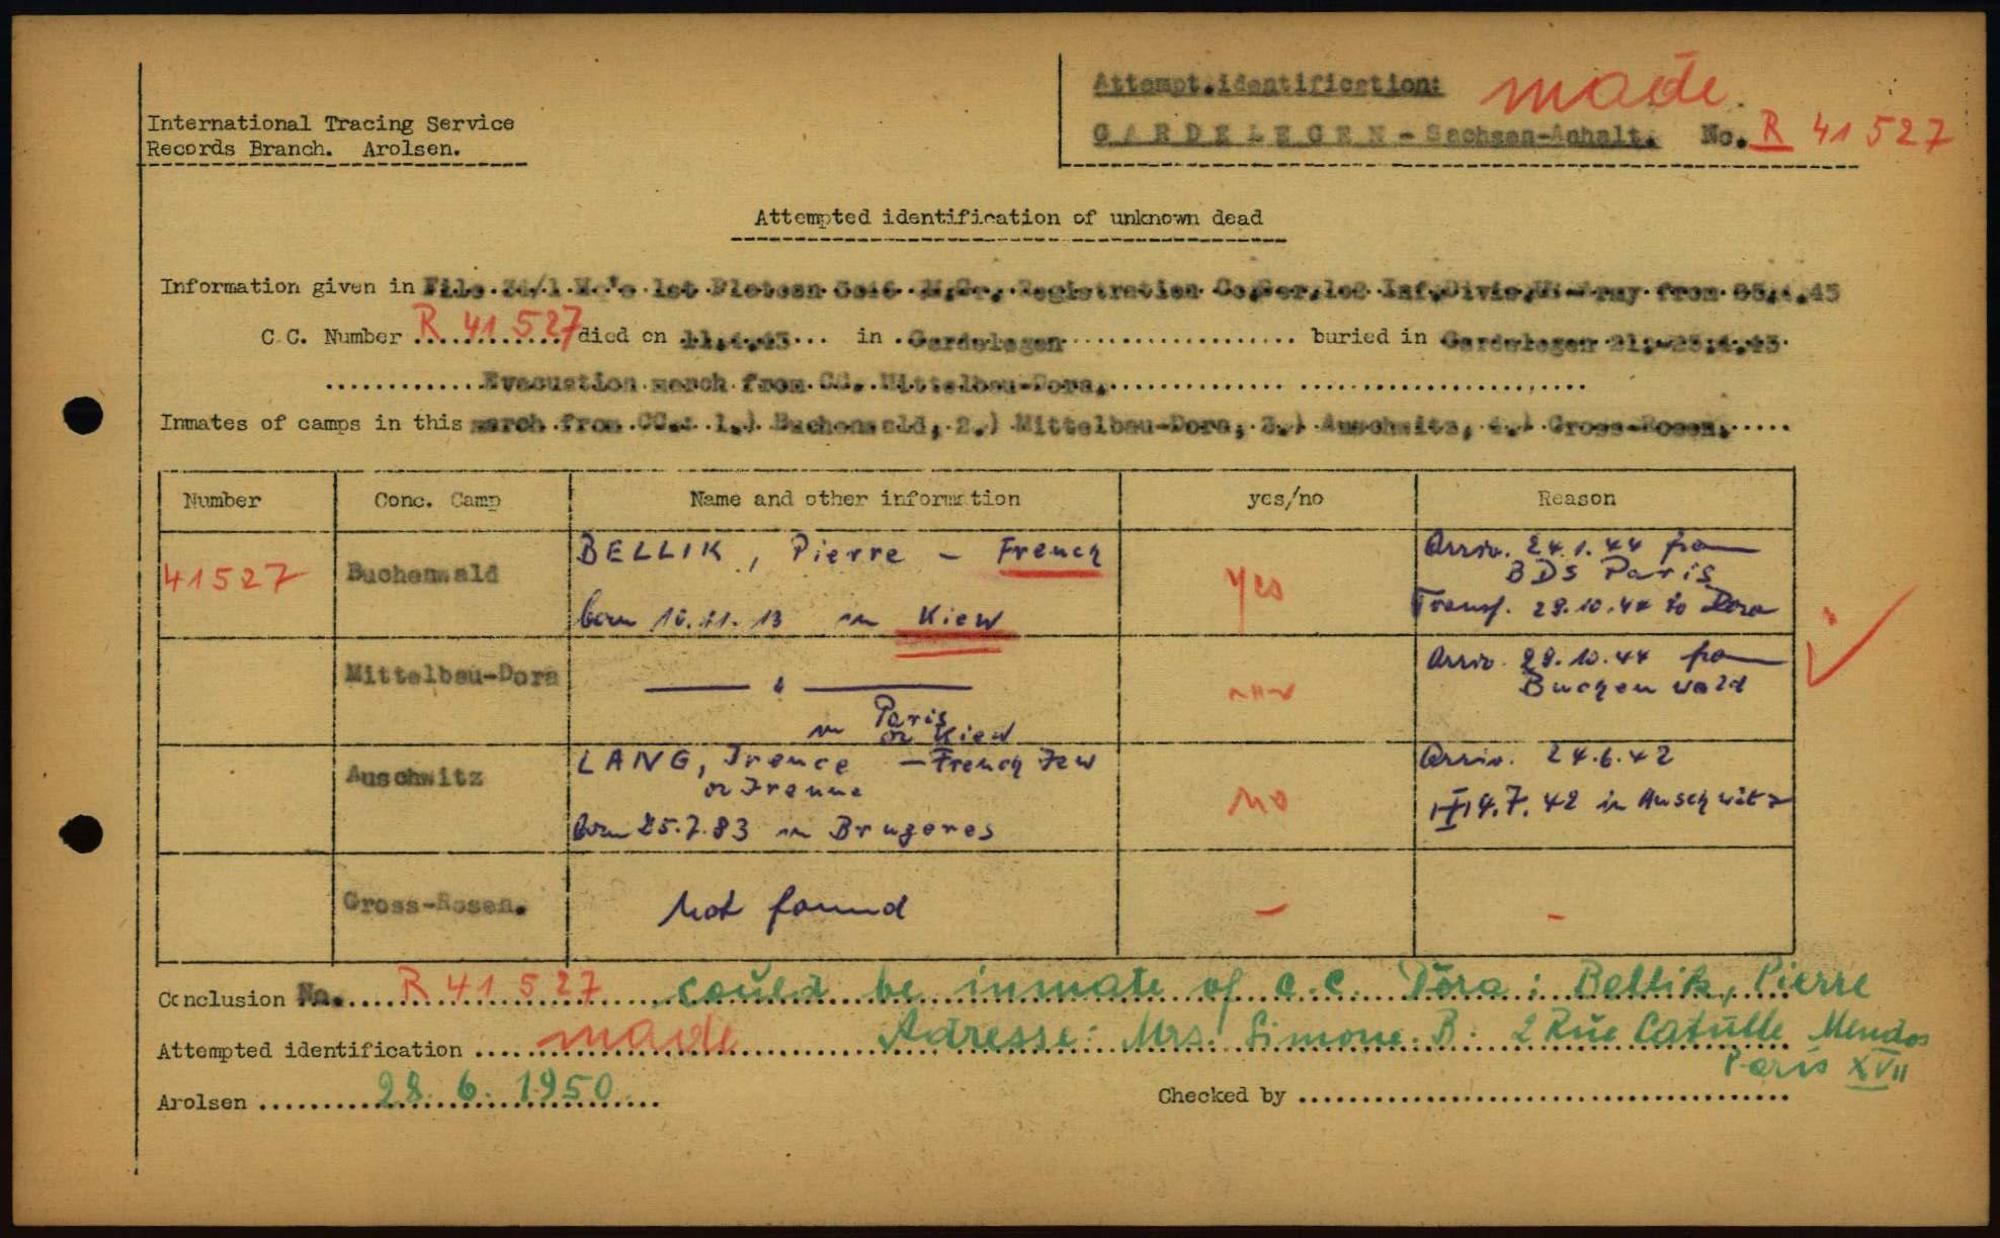 Attempt.identification: made
International Tracing Service
Records Branch. Arolsen.
GARDELEGEN - Sachsen-Anhalt. No. R 41 527
Attempted identification of unknown dead
Information given in File 1st Platoon Gr. Registration Inf. from
C.C. Number R 41 527 died on in Gardelegen buried in Gardelegen
Evacuation march from CC. Mittelbau-Dora.
Inmates of camps in this march from CC.: 1.) Buchenwald, 2.) Mittelbau-Dora, 3.) Auschwitz, 4.) Gross-Rosen.
Number Conc. Camp Name and other information yes/no Reason
41527 Buchenwald BELLIK, Pierre - French yes Arriv. 24.1.44 from
BDS Paris
born in Kiew Transf. 29.10.44 to Dora
Mittelbau-Dora — " — Arriv. 29.10.44 from
Buchenwald
in Paris
or Kiew
Auschwitz LANG, - French Jew no Arriv. 24.6.42
or
born 25.7.83 in 14.7.42 in Auschwitz
Gross-Rosen. Not found - -
Conclusion No. R 41 527 could be inmate of C.C. Dora: Bellik, Pierre
Attempted identification made Adresse: Mrs. Simone B. 2 Rue Catulle Mendes
Paris XVII
Arolsen 28. 6. 1950 Checked by